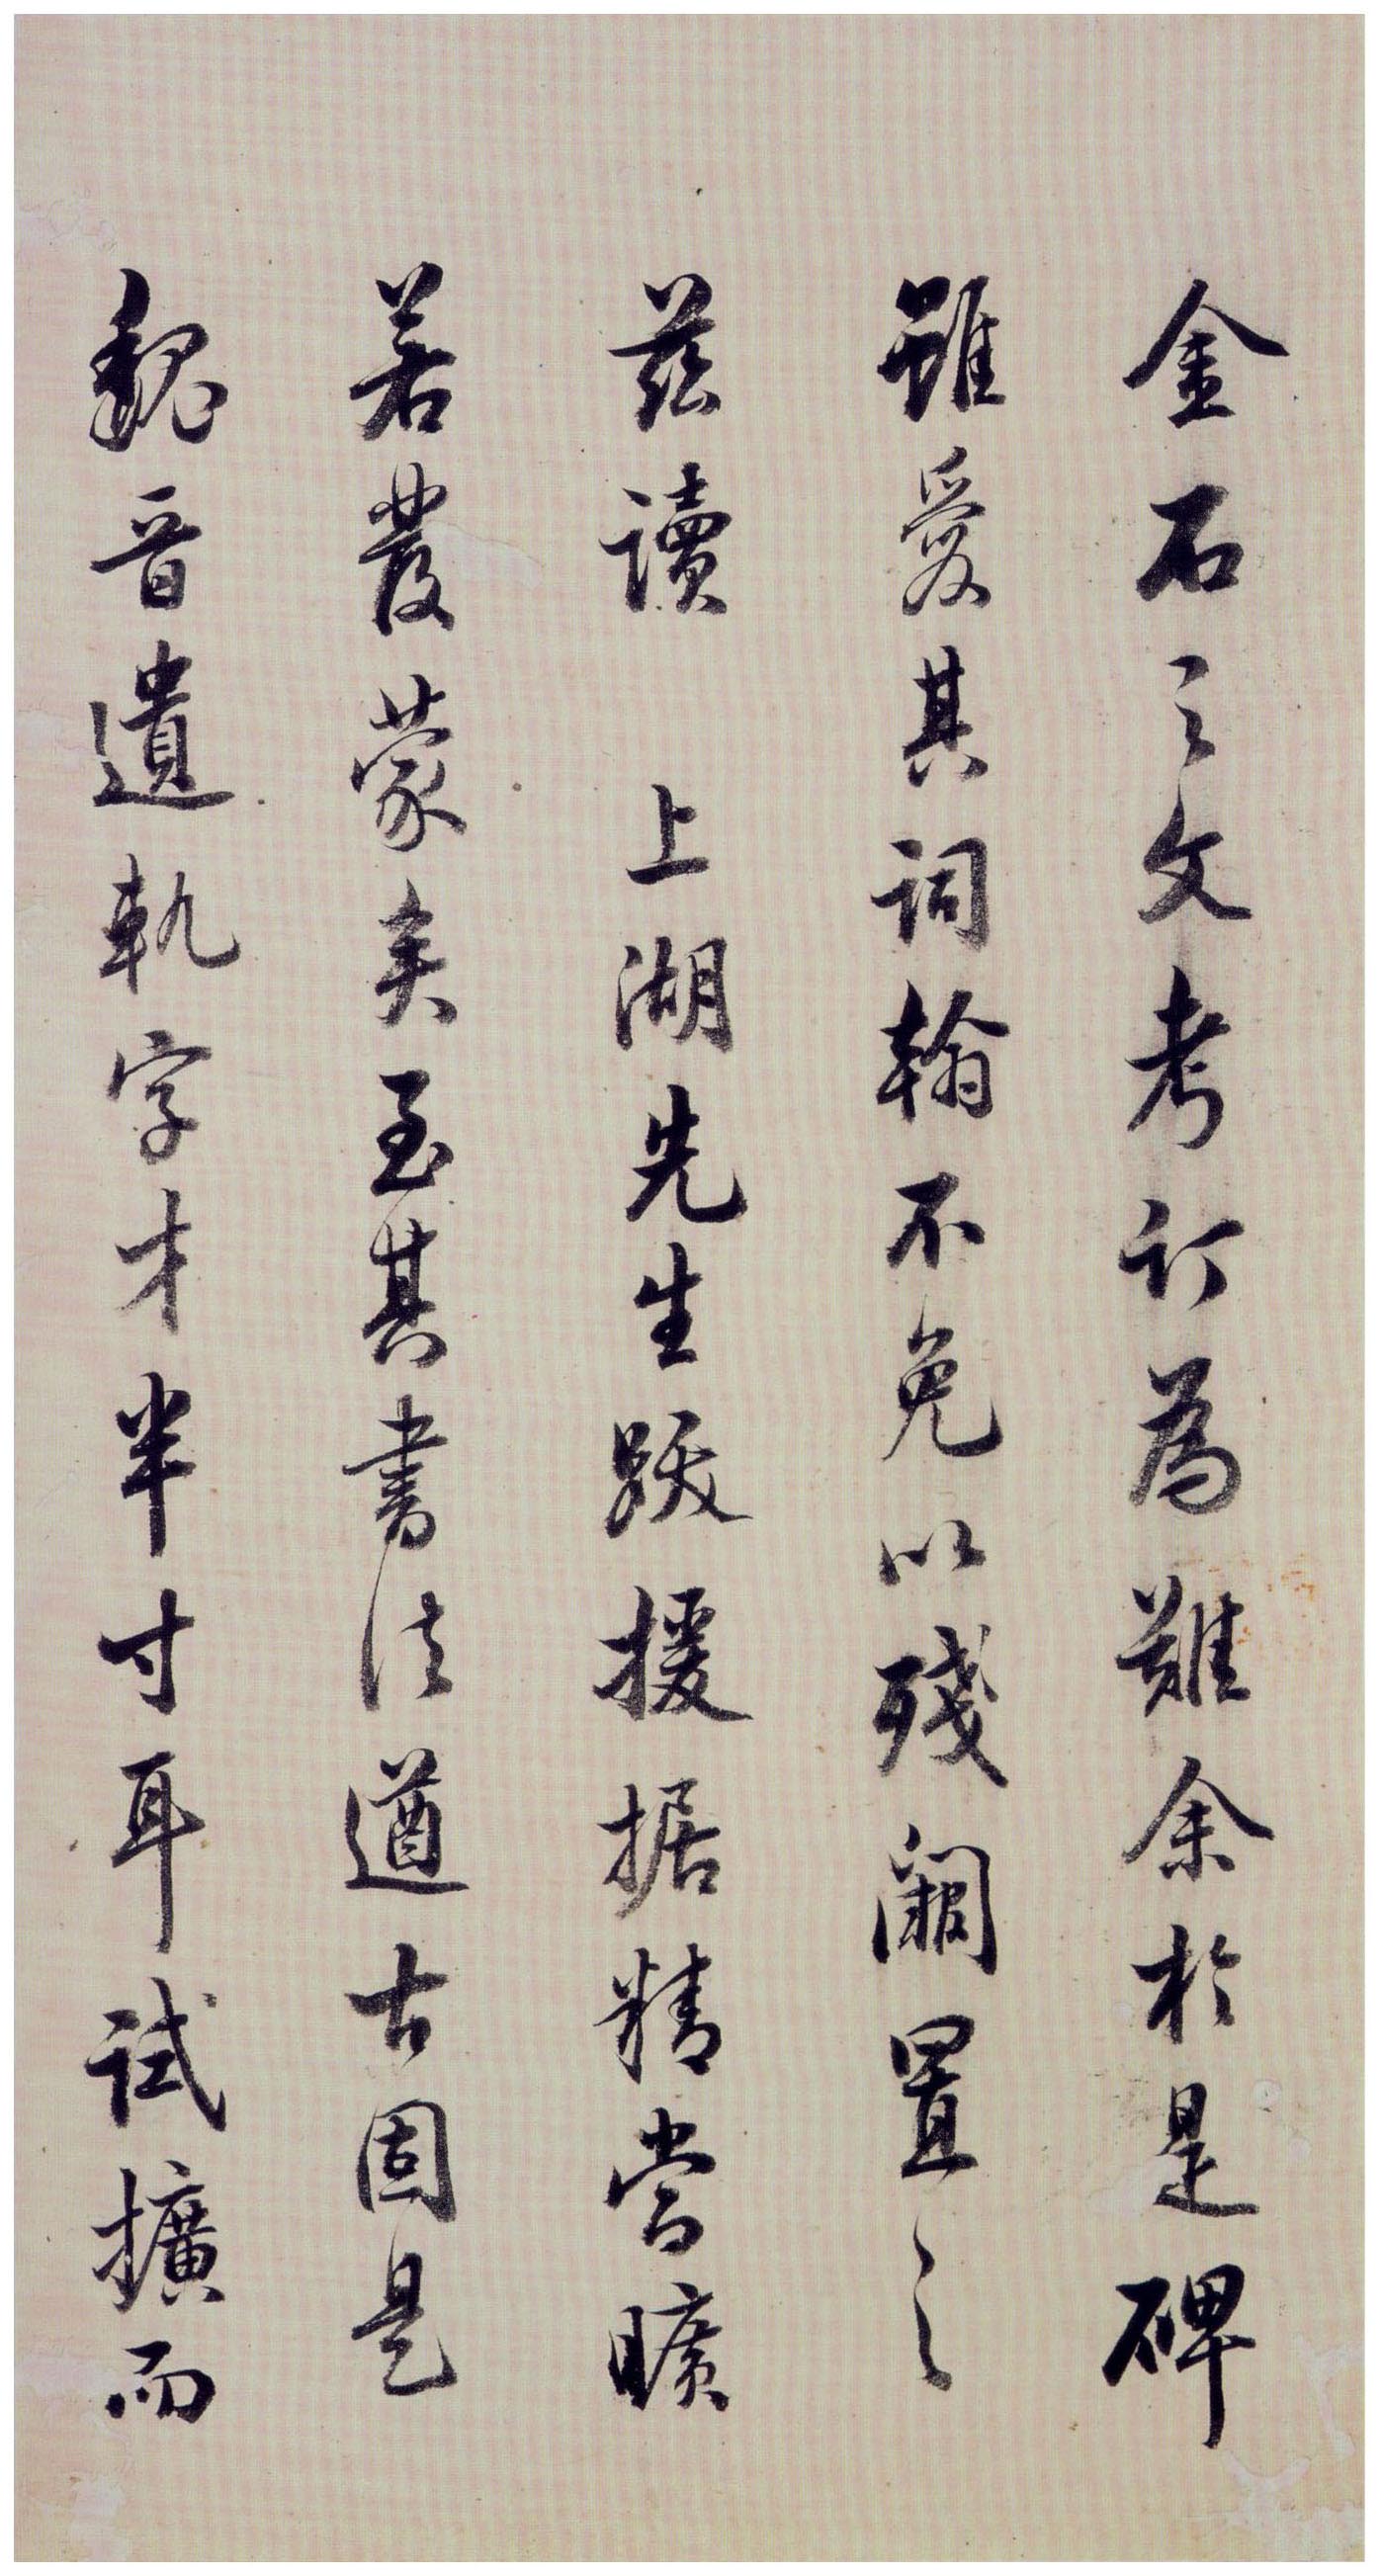 金石之文考訂為難余於是碑
雖愛其詞翰不免以殘闕置之
茲讀 上湖先生跋援据精當曠
若發蒙矣至其書法遒古固是
魏晉遺軌字才半寸耳試擴而